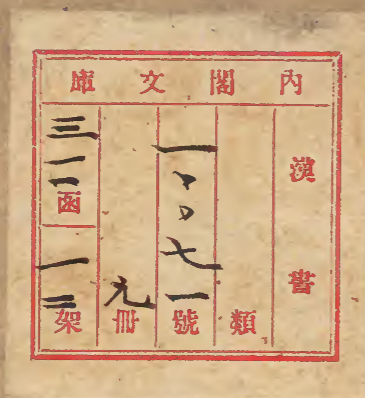 內閣文庫
漢書
類
一、、七一號
九冊
三一一函
一二架